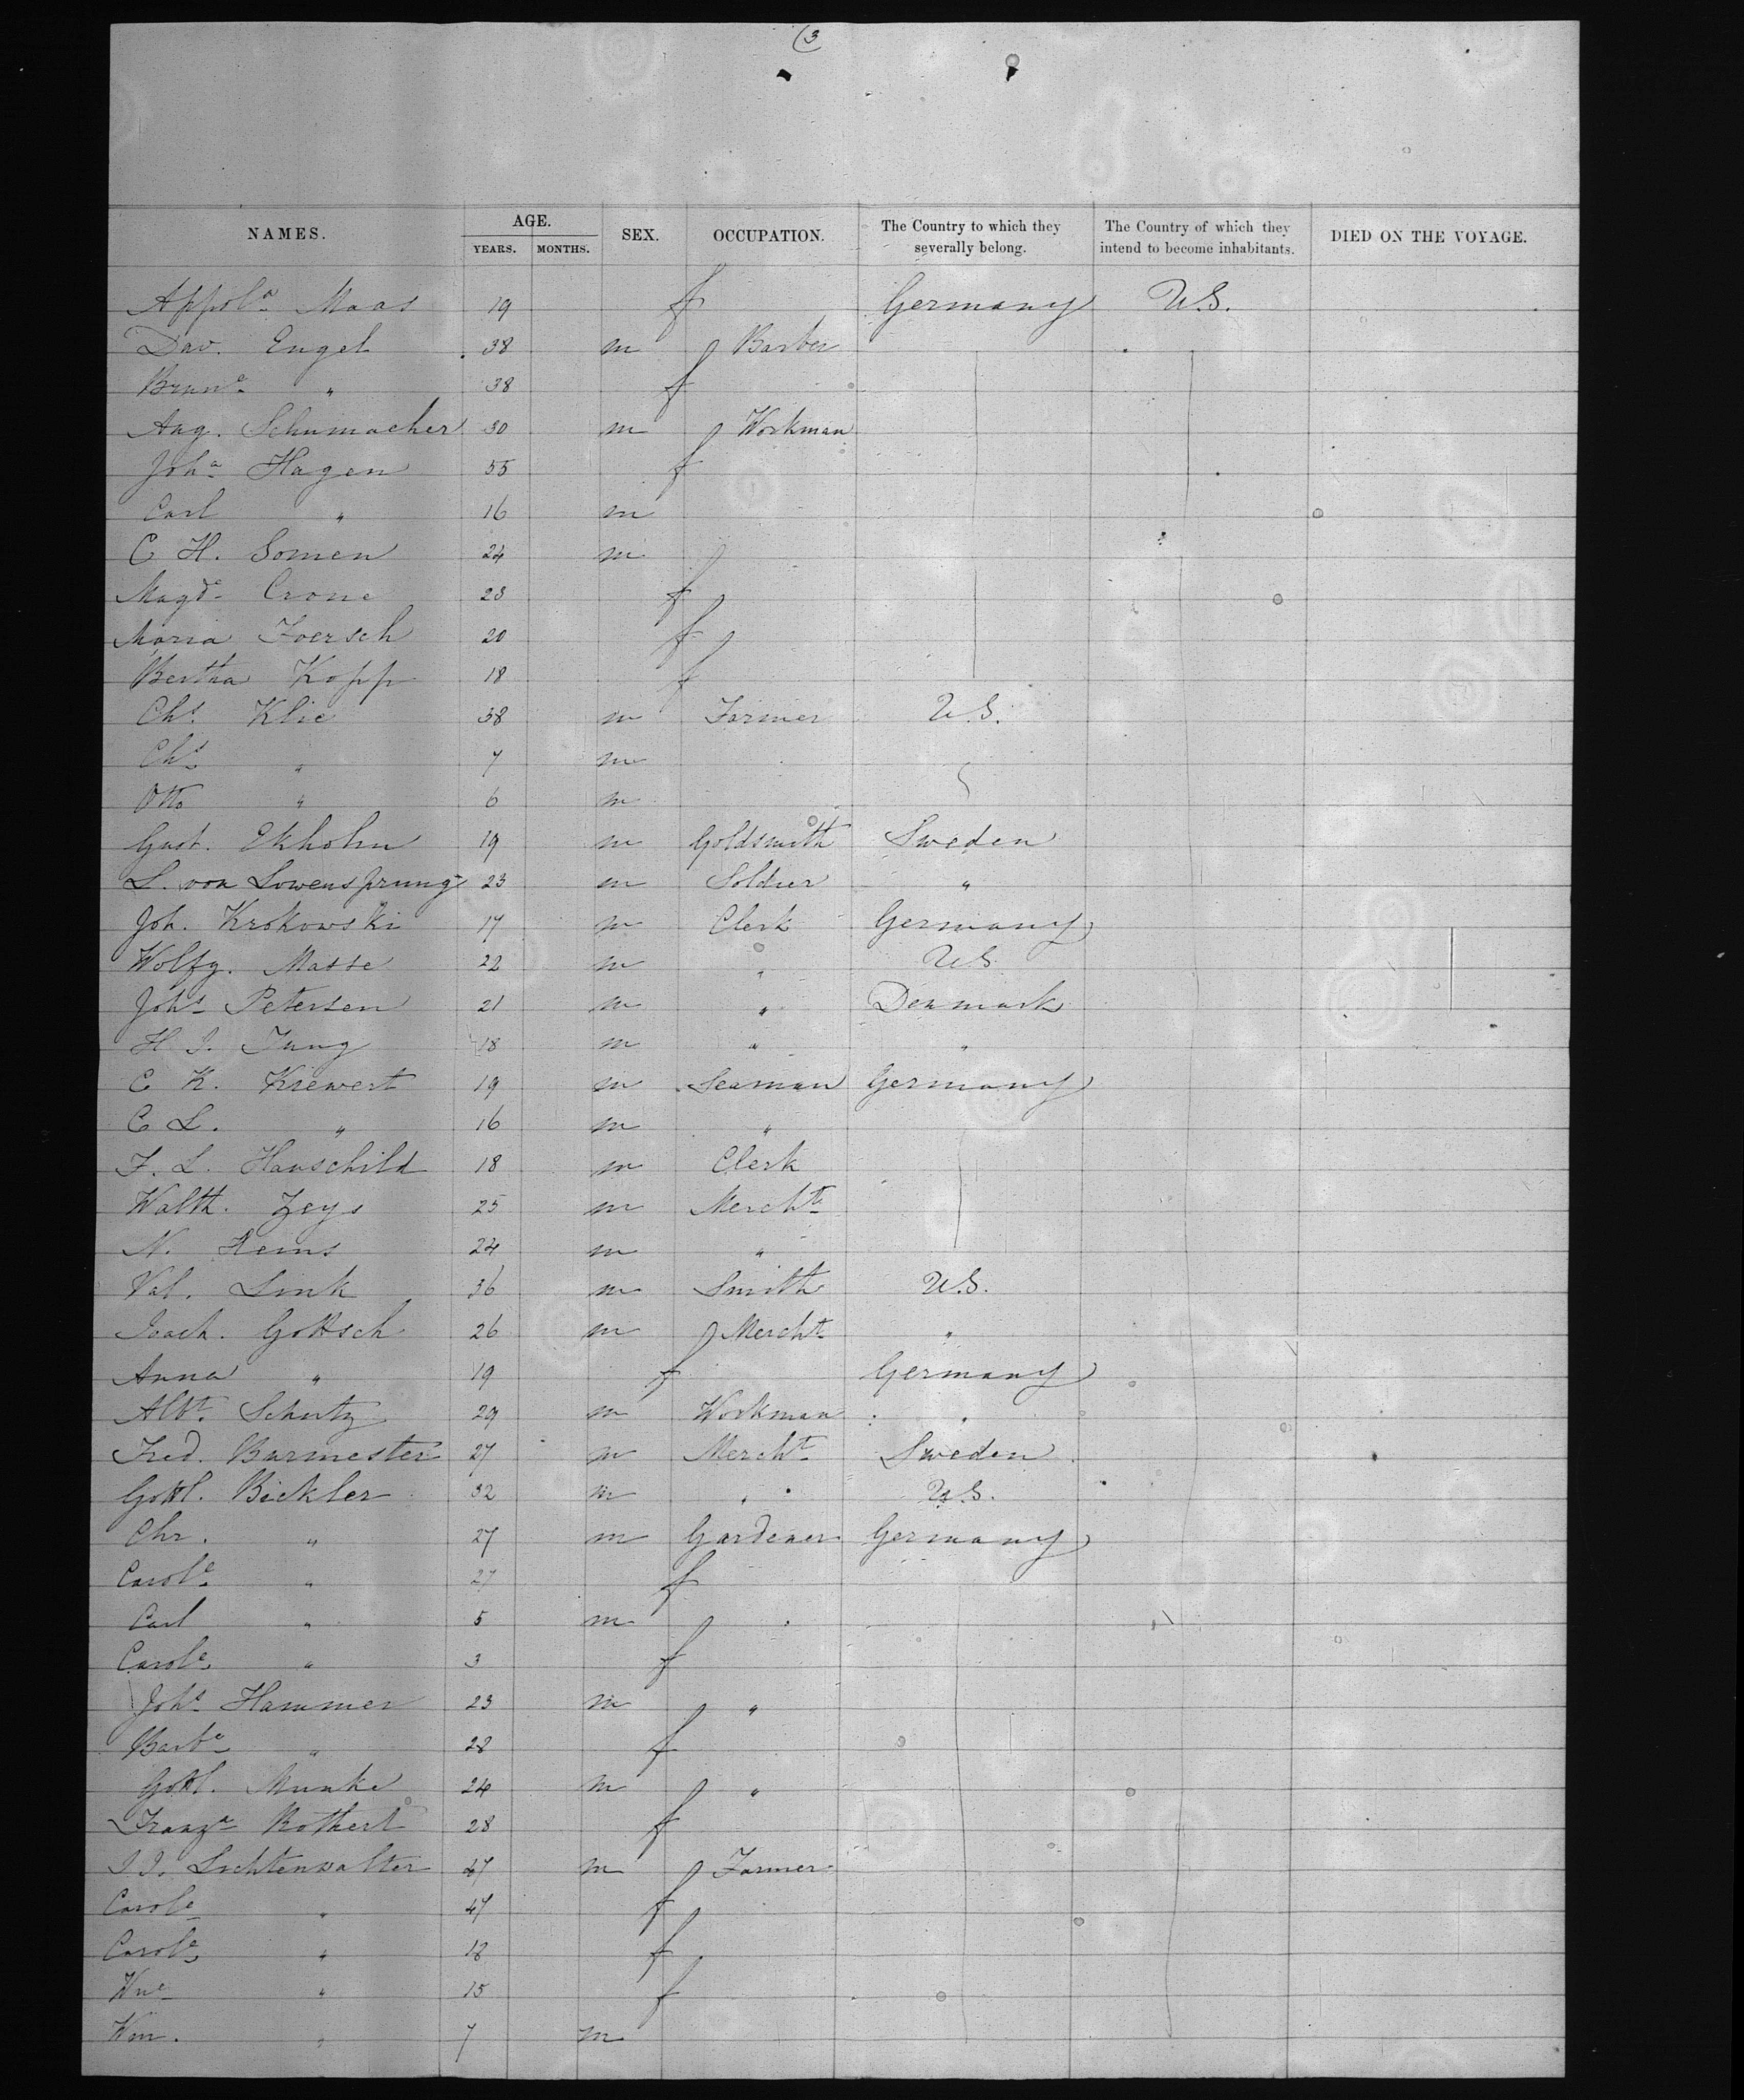 (3
NAMES. AGE. YEARS. MONTHS. SEX. OCCUPATION. The Country to which they severally belong. The Country of which they intend to become inhabitants. DIED ON THE VOYAGE.
Appola Maas 19 f Germany U.S.
Dav. Engel 38 m Barber
Brune " 38 f
Aug. Schumacher 30 m Workman
Joha Hagen 55 f
Carl " 16 m
C H. Somen 24 m
Magde Crone 23 f
Maria Foersch 20 f
Bertha Kopp 18 f
Chs. Klie 38 m Farmer U.S.
Chs. " 7 m
Otto " 6 m
Gust. Ekholm 19 m Goldsmith Sweden
L. von Lowensprung 23 m Soldier "
Joh. Krokowski 17 m Clerk Germany
Wolfg. Masse 22 m " U.S.
Johs Petersen 21 m " Denmark
H J. Jung 18 m " "
C K. Kiewert 19 m Seaman Germany
C L. " 16 m "
F. L. Hauschild 18 m Clerk
Walth. Zeys 25 m Mercht
N. Heins 24 m "
Val. Link 36 m Smith U.S.
Joach. Gottsch 26 m Mercht "
Anna " 19 f Germany
Albt. Schutz 29 m Workman "
Fred. Burmester 27 m Mercht Sweden
Gottl. Bickler 32 m " U.S.
Chr. " 27 m Gardener Germany
Carole " 27 f
Carl " 5 m
Carole " 3 f
Johs Hammer 23 m "
Barbe " 28 f
Gottl. Munke 24 m "
Franza Rothert 28 f
J J. Lichtenwalter 47 m Farmer
Carole " 47 f
Carole " 18 f
Wne " 15 f
Wm. " 7 m